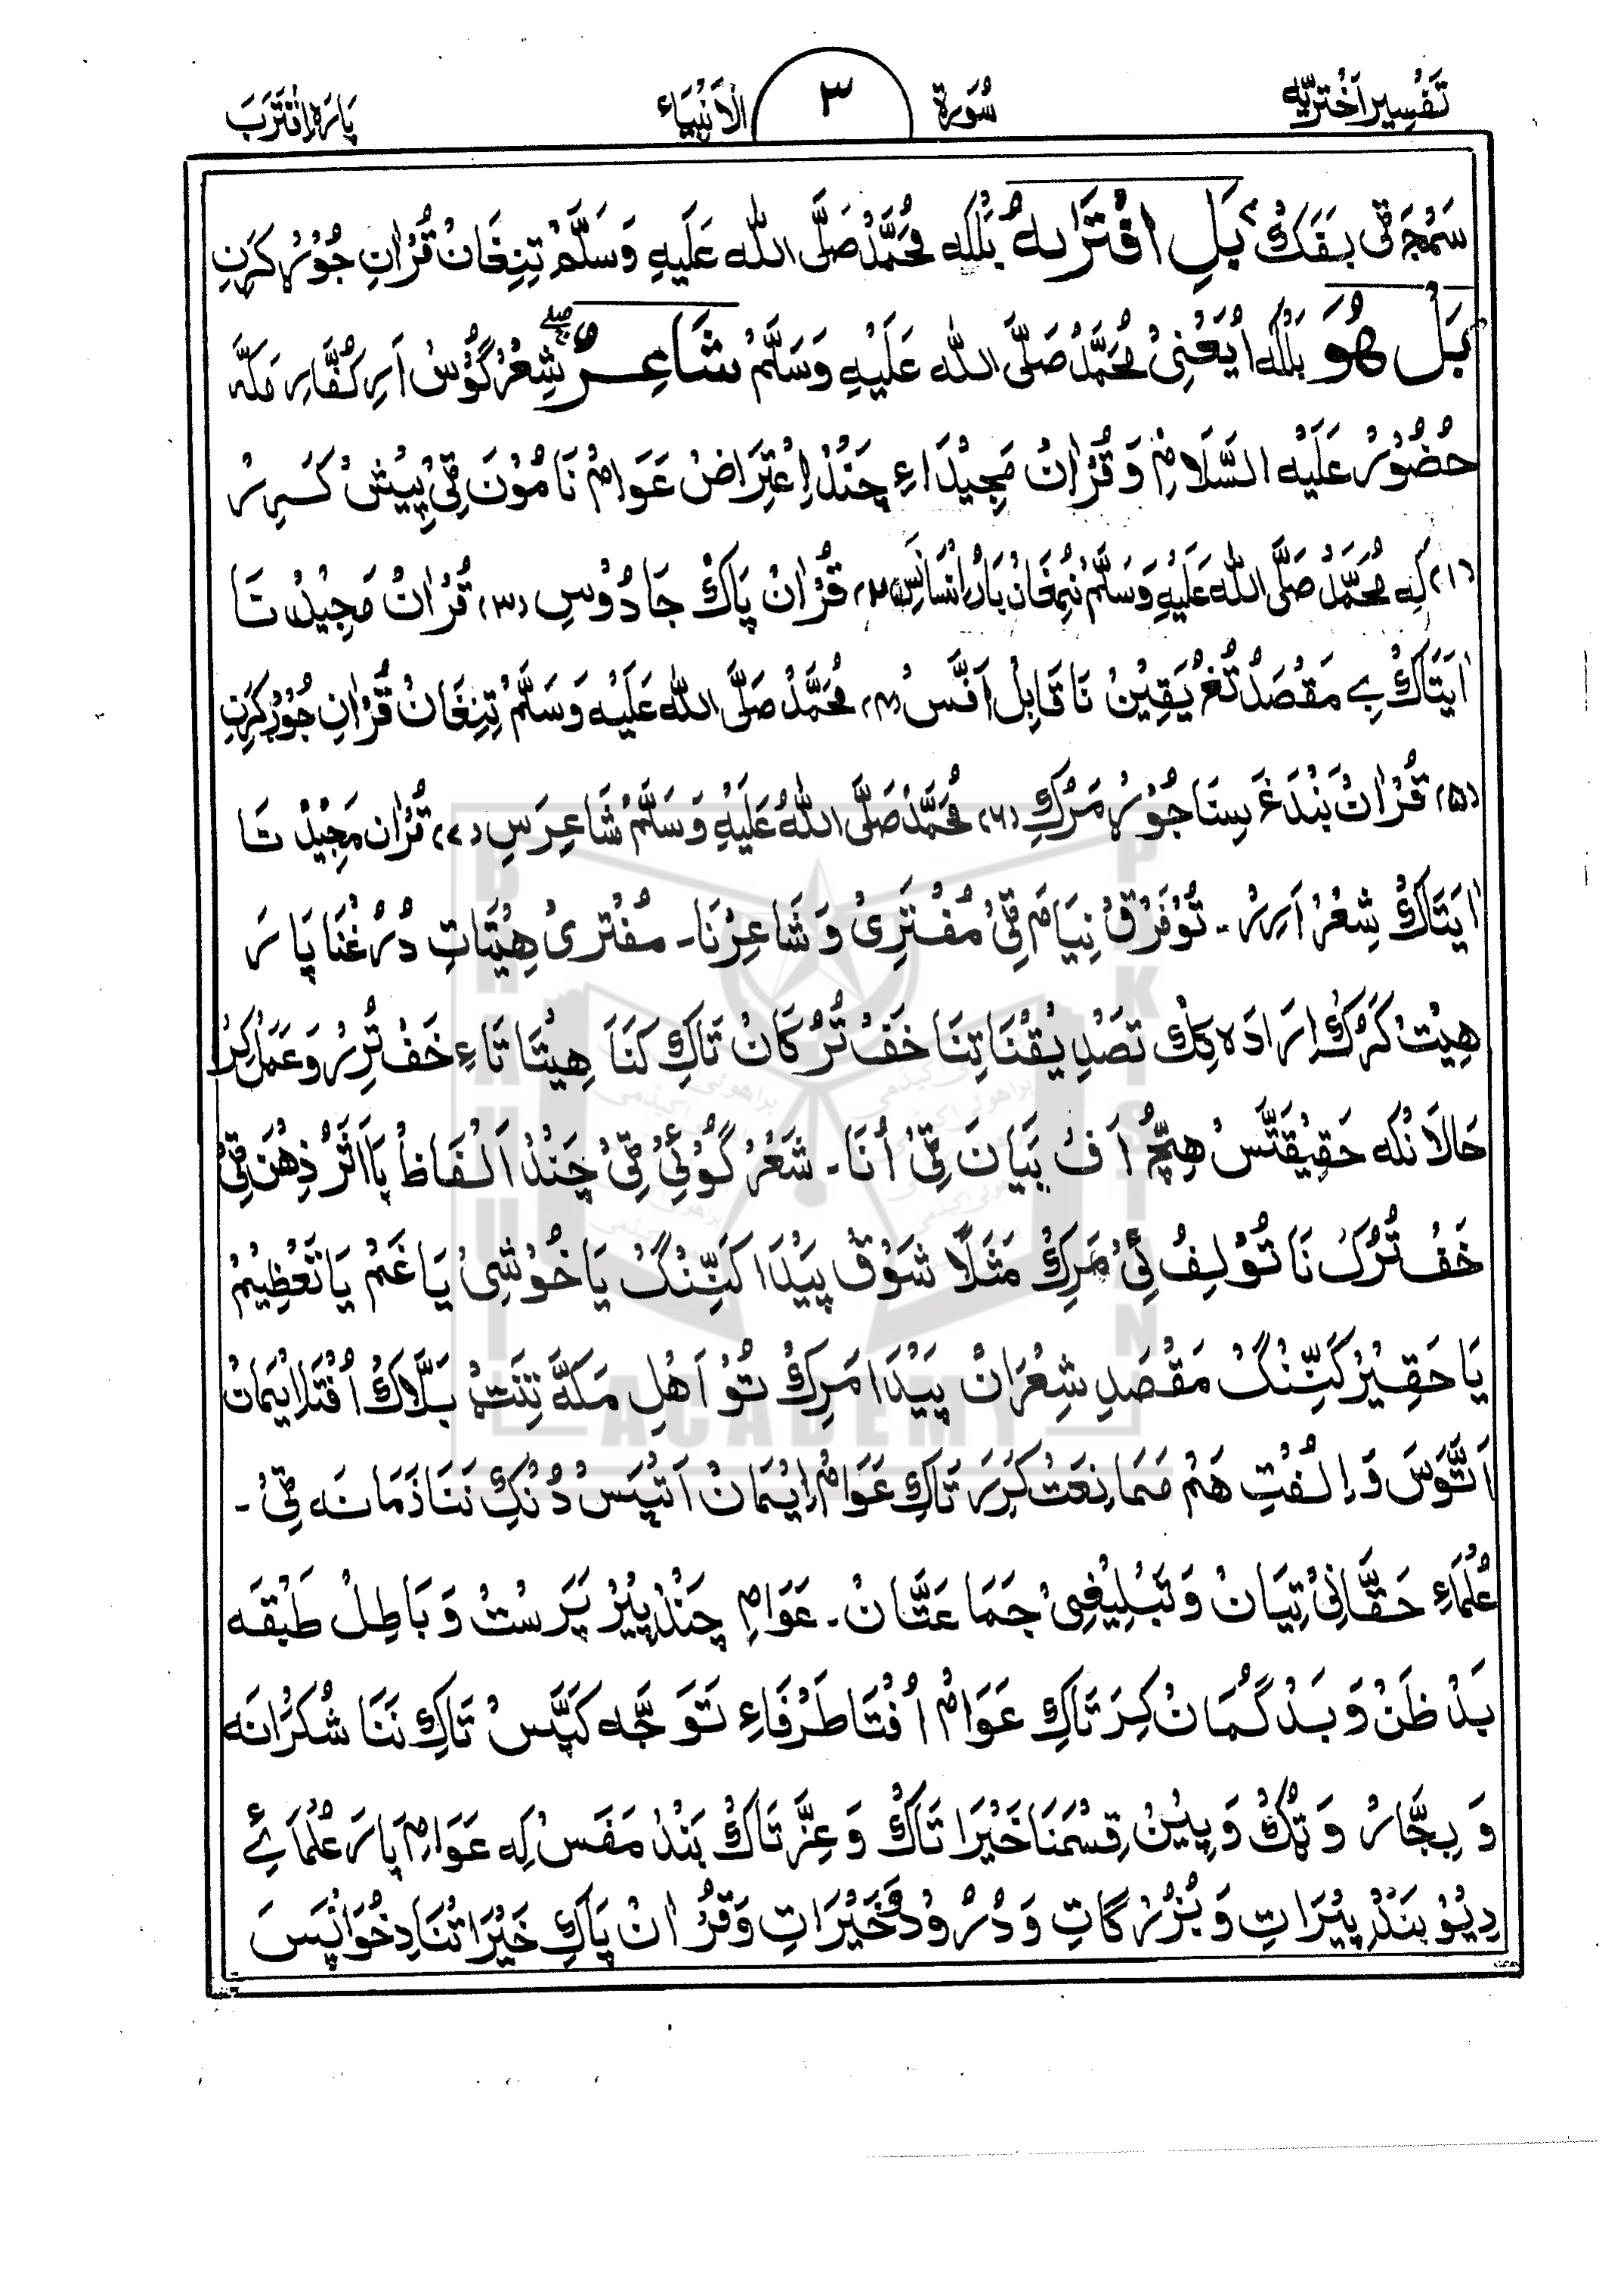 تَفسِیر اَختَرِیَّه سُورَة ٣ اَلاَنبِیَاء پَارَہ اِقتَرَبَ
سَمُجَ ٹی بَفَکْ بَلِ افْتَرَاىهُ بَلْکِه مُحَمَّدْ صَلَّی اللّٰه عَلَیهِ وَسَلَّمْ تِنِغَانْ قُرْانِ جُوْڑ کَرَنِ
بَلْ هُوَ بَلْکِه اُ یَعْنِیْ مُحَمَّدْ صَلَّی اللّٰه عَلَیْهِ وَسَلَّمْ شَاعِرٌ شِعْر گُوْس اَرِ کُفَّارِ مَکَّه
حُضُوْر عَلَیْه السَّلَامْ وَ قُرْانْ مَجِیْدَاءِ چَنْدْ اِعْتِرَاضْ عَوَامْ نَا مُوْنَ ٹِیْ پِیْش کَرِرْ
(١) کِه مُحَمَّدْ صَلَّی اللّٰه عَلَیْهِ وَسَلَّمْ نُمْغَانْ بَارْ اِنْسَانَسِ (٢) قُرْانْ پَاکْ جَادُوْسِ (٣) قُرْانْ مَجِیْدْ تَا
اٰیَتَاکْ بِے مَقْصَدْ تُغْ یَقِیْنْ نَا قَابِلْ اَفَّسْ (٤) مُحَمَّدْ صَلَّی اللّٰه عَلَیْهِ وَسَلَّمْ تِنِغَانْ قُرْانِ جُوْڑ کَرَنِ
(٥) قُرْانْ بَنْدَغَ سِتَا جُوْڑ مَرِکِ (٦) مُحَمَّدْ صَلَّی اللّٰهُ عَلَیْهِ وَسَلَّمْ شَاعِرَسِ (٧) قُرْان مَجِیْدْ تَا
اٰیَتَاکْ شِعْر اَرِرْ۔ تُوْ فَرْقْ نِیَامْ ٹِیْ مُفْتَرِیْ وَ شَاعِرْنَا۔ مُفْتَرِیْ هِیْتَاتِ دُرُغْنَا پَارَ
هِیْتْ کَرَکْ اِرَادَہ کِکْ تَصْدِیْقْنَا تِنَا خَفْ تُرْکَانْ تَاکِ کَنَا هِیْتَا تَاءِ خَفْ تِرِرْ وَ عَمَلْ کِرْ
حَالَانْکِه حَقِیْقَتَّسْ هِچُّ اَفْ بَیَانَ ٹِیْ اُنَا۔ شَعْر گُوْئِیْ ٹِیْ چَنْدْ اَلْفَاظْ بَا اَثَرْ ذِهْنَ ٹِیْ
خَفْ تُرْکْ نَا تُوْلِفْ ئِیْ مَرِکْ مَثَلًا شَوْقْ پَیْدَا کَنِّنْگْ یَا خُوْشِیْ یَا غَمْ یَا تَعْظِیْمْ
یَا حَقِیْر کَنِّنْگْ مَقْصَدِ شِعْرَانْ پَیْدَا مَرِکْ تُوْ اَهْلِ مَکَّه تِنَتْ بَلَّاکْ اُفْتَا اِیْمَانْ
اَتُّوْسَ وَ اِلْفْتِ هَمْ مَمَانِعَتْ کَرَرَ تَاکِ عَوَامْ اِیْمَانْ اَتَپَسْ دُنْکِ نَنَا زَمَانَه ٹِیْ۔
عُلَمَاءِ حَقَّانِیْ تِیَانْ وَ تَبْلِیْغِیْ جَمَاعَتَّانْ۔ عَوَامِ چَنْدْ پِیْر پَرَسْتْ وَ بَاطِلْ طَبْقَه
بَدْ ظَنْ وَ بَدْ گُمَانْ کِرَ تَاکِ عَوَامْ اُفْتَا طَرْفَاءِ تَوَجَّه کَپَّسْ تَاکِ نَنَا شُکْرَانَه
وَ بِجَّارْ وَ ٹُکْ وَ پِیْنْ قِسْمَنَا خَیْرَاتَاکْ وَ عِزَّتَاکْ بَنْدْ مَفَسْ کِه عَوَامِ پَارَ عُلَمَائِے
دِیُوْبَنْدْ پِیْرَاتِ وَ بُزُرْگَاتِ وَ دُرُوْدْ وَ خَیْرَاتِ وَ قُرْانْ پَاکِ خَیْرَاتْنَا دِ خُوَانْپَسَ